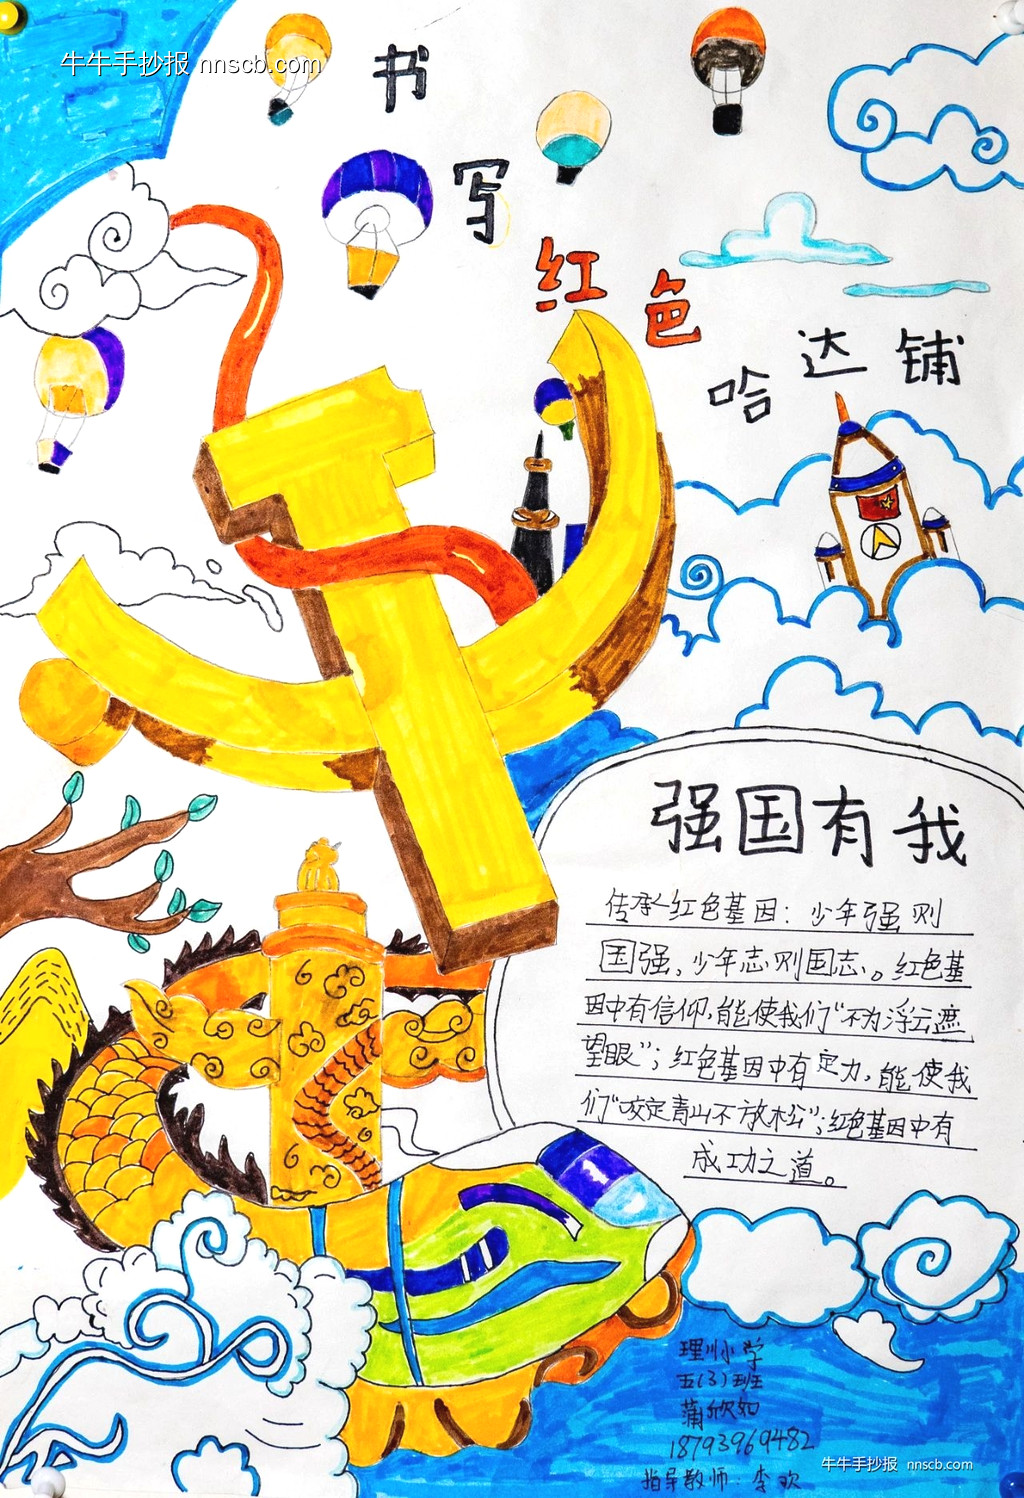 牛牛手抄报 nnscb.com
书写红色哈达铺
强国有我
传承红色基因：少年强则
国强，少年志则国志。红色基
因中有信仰，能使我们“不为浮云遮
望眼”；红色基因中有定力，能使我
们“咬定青山不放松”；红色基因中有
成功之道。
理川小学
五(3)班
蒲欣如
18793969482
指导教师：李欢
牛牛手抄报 nnscb.com